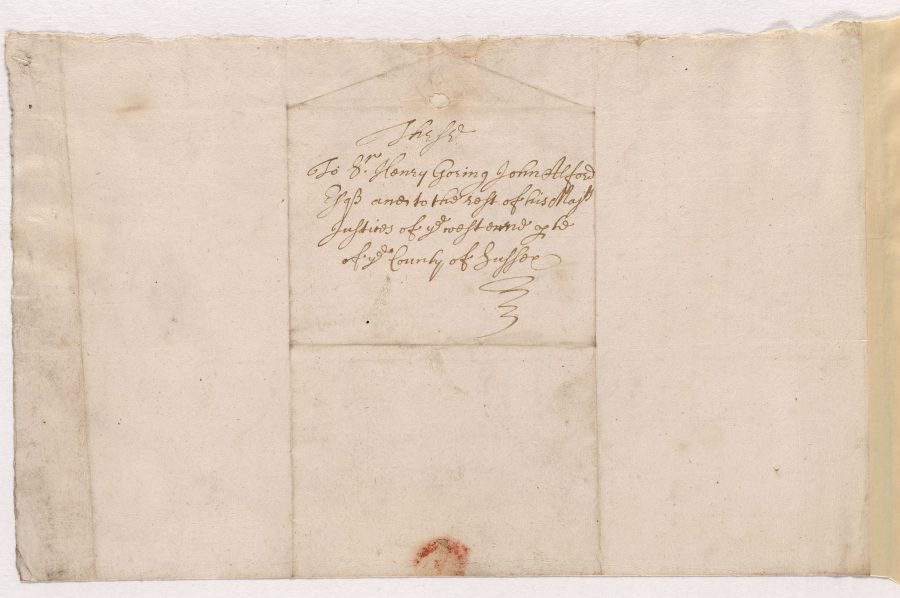 These
To Sr Henry Goring John Alford
Esqs and to the rest of his Maj
Justices of ye west
of ye County of Sussex